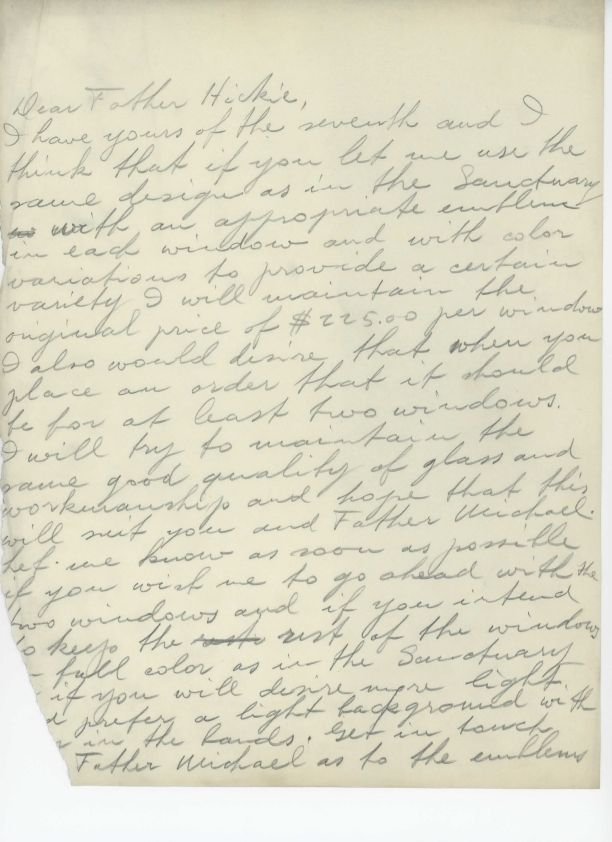 Dear Father Hickie,
I have yours of the seventh and I
think that if you let me use the
same design as in the Sanctuary
with an appropriate emblem
in each window and with color
variations to provide a certain
variety I will maintain the
original price of $225.00 per window
I also would desire that when you
place an order that it should
be for at least two windows.
I will try to maintain the
same good quality of glass and
workmanship and hope that this
will suit you and Father Michael.
let me know as soon as possible
if you wish me to go ahead with the
two windows and if you intend
to keep the rest of the windows
full color as in the Sanctuary
if you will desire more light
prefer a light background with
in the bands. Get in touch
Father Michael as to the emblems